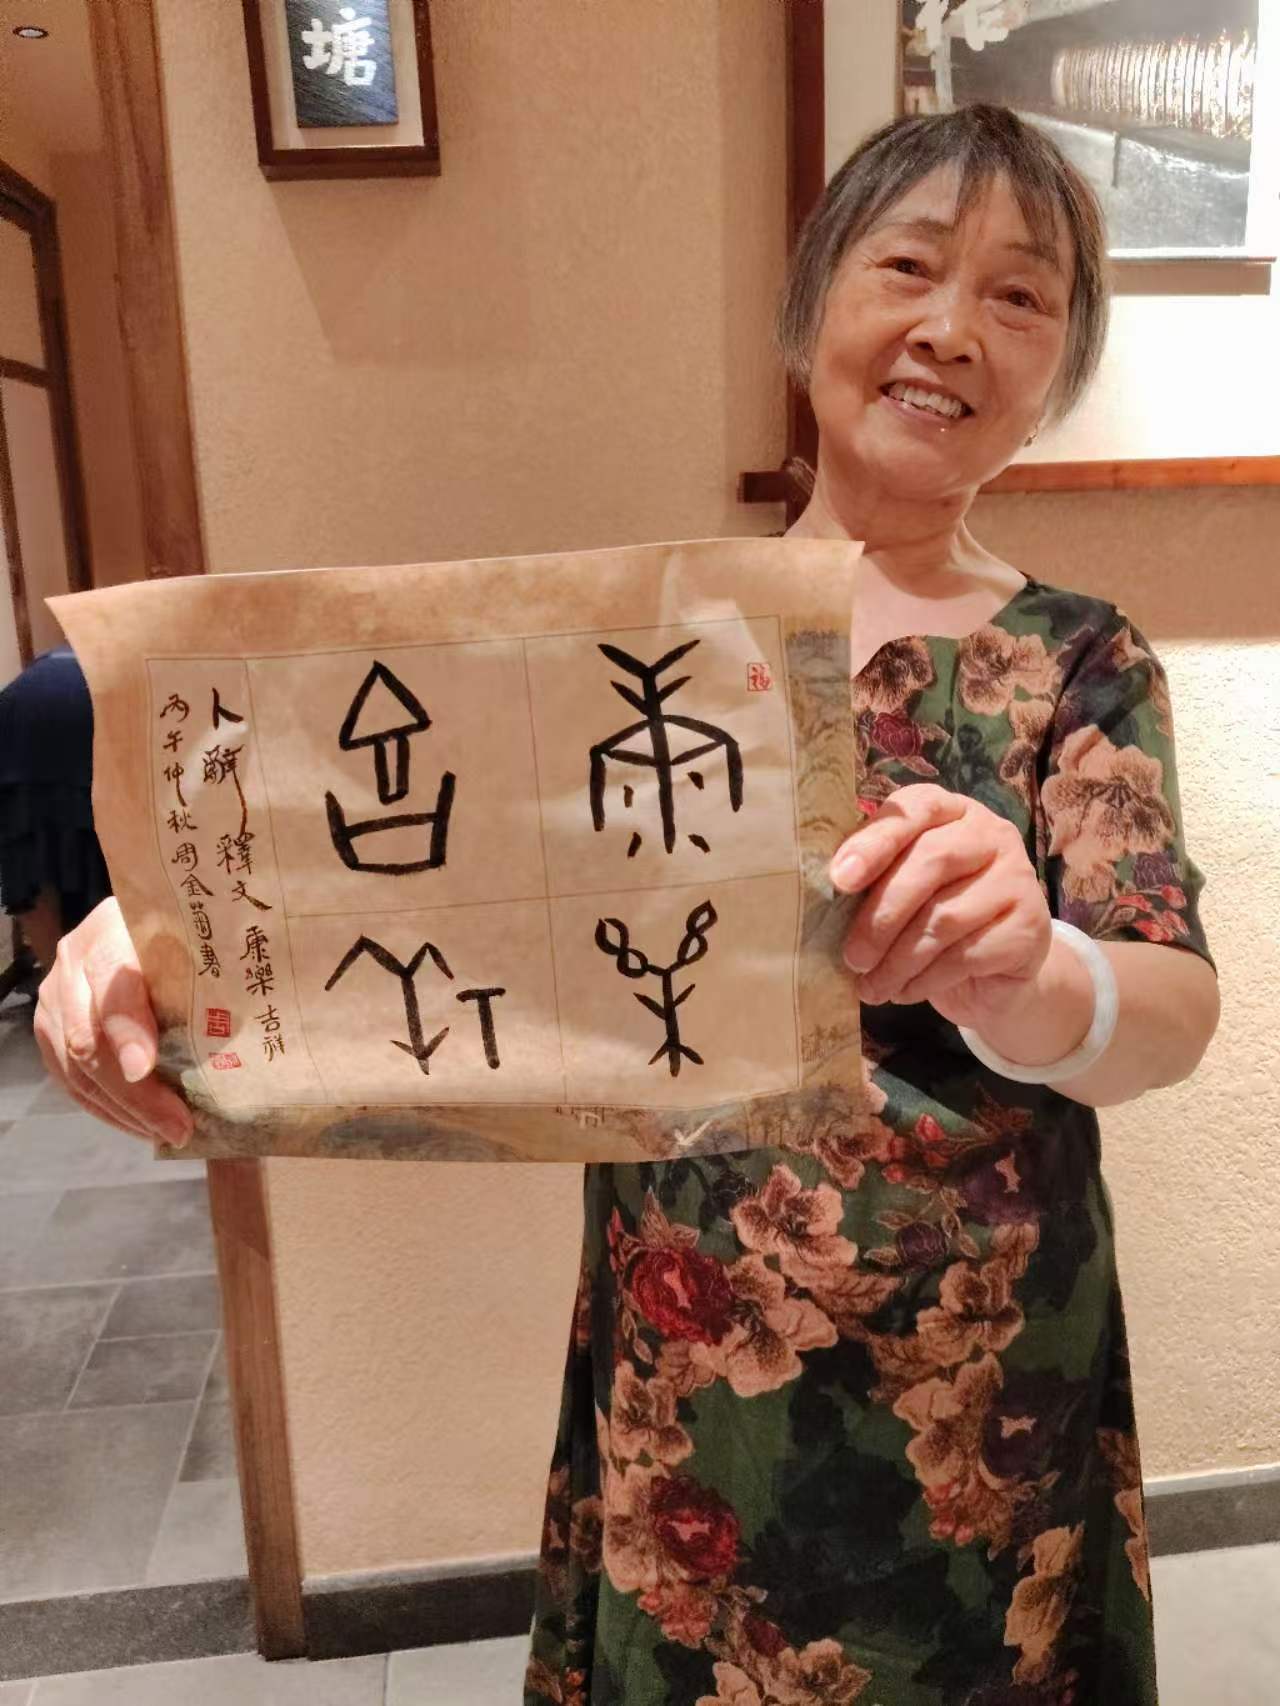 塘
福
康樂
吉祥
卜辭 釋文 康樂吉祥
丙午仲秋周金菊書